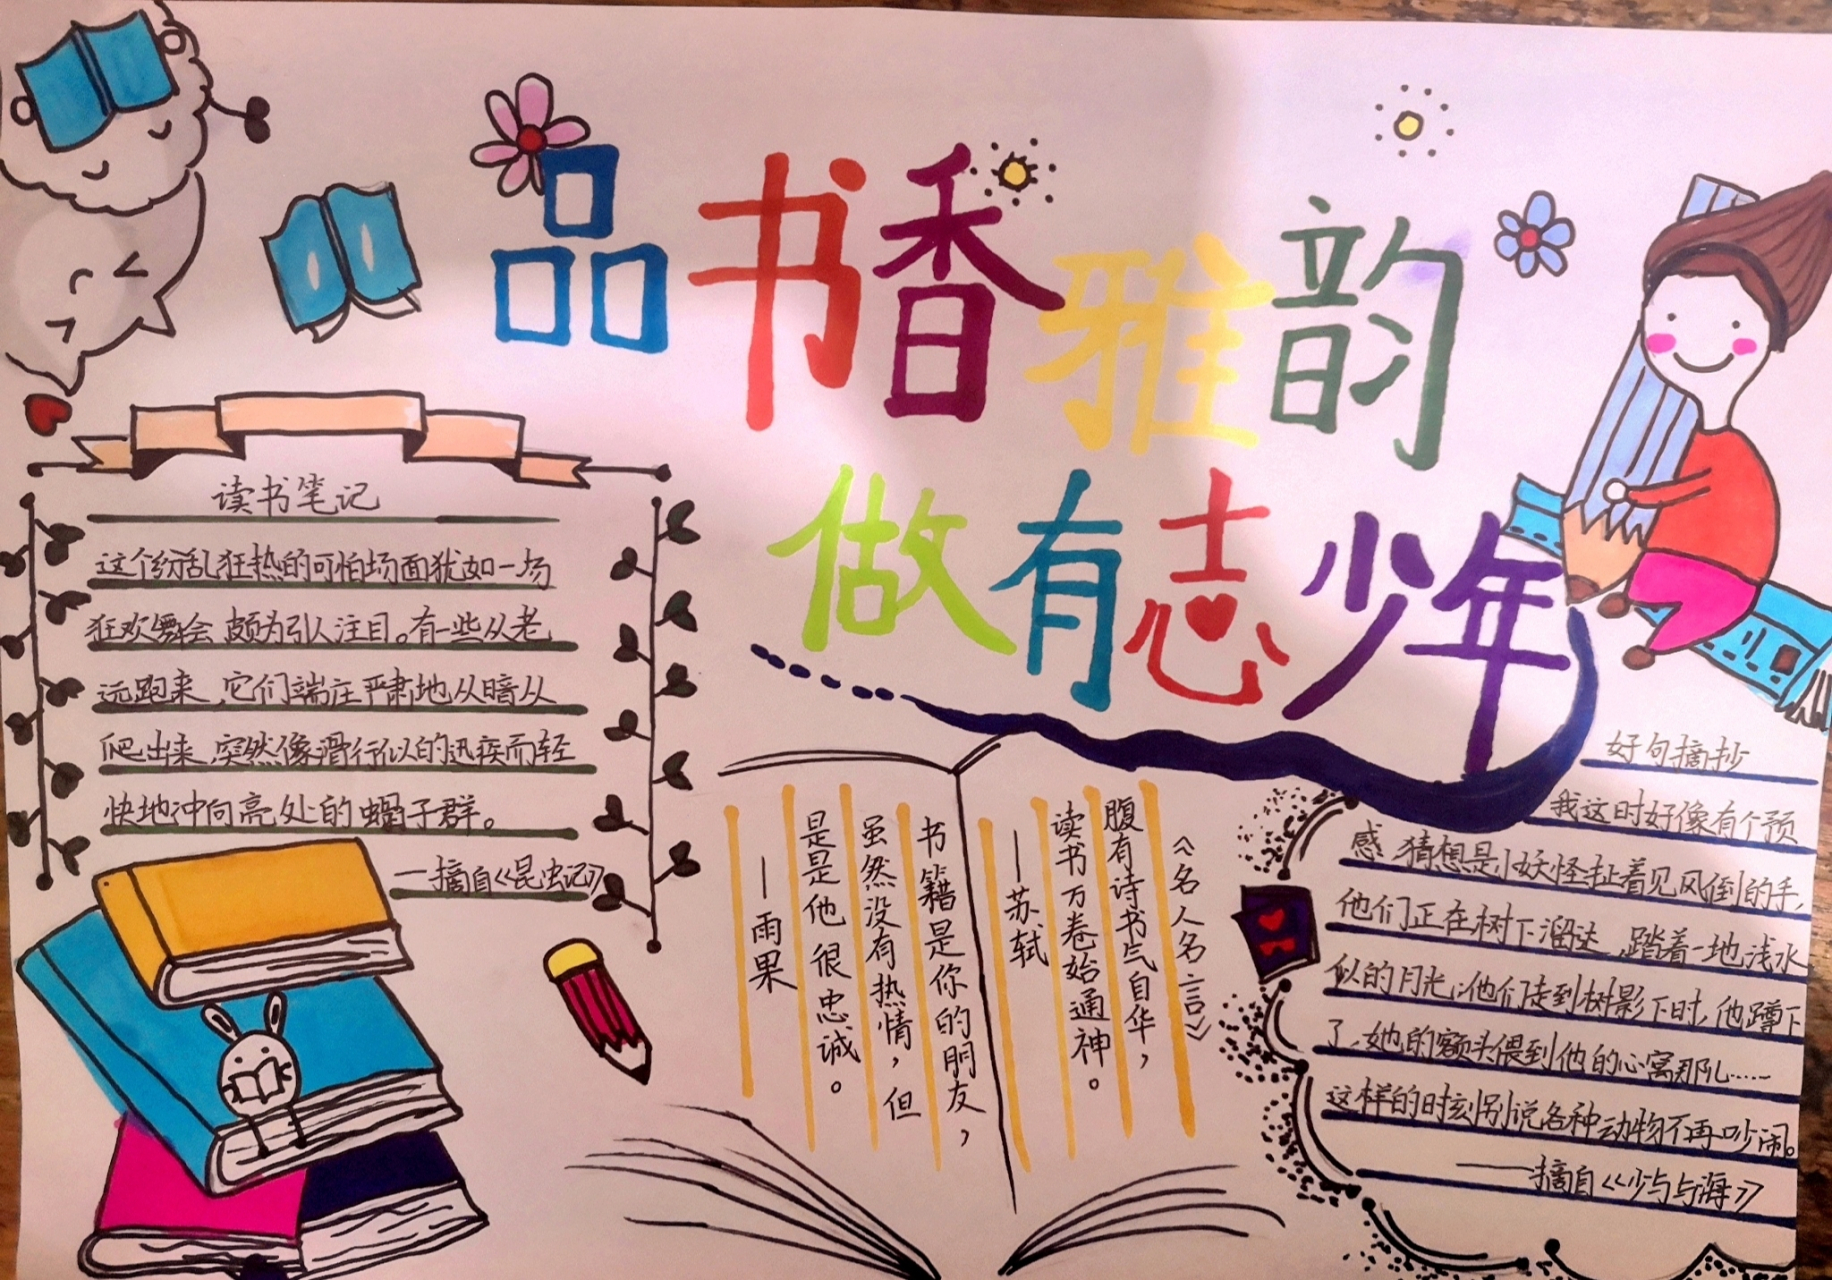 品书香雅韵
做有志少年
读书笔记
这个纷乱狂热的可怕场面犹如一场
狂欢舞会,颇为引人注目。有一些从老
远跑来,它们端庄严肃地从暗从
爬出来,突然像滑行似的迅疾而轻
快地冲向亮处的蝎子群。
——摘自《昆虫记》
《名人名言》
腹有诗书气自华,
读书万卷始通神。
——苏轼
书籍是你的朋友,
虽然没有热情,但
是是他很忠诚。
——雨果
好句摘抄
我这时好像有个预
感,猜想是小妖怪扯着见风倒的手,
他们正在树下溜达,踏着一地浅水
似的月光,他们走到树影下时,他蹲下
了,她的额头偎到他的心窝那儿……
这样的时刻别说各种动物不再吵闹。
——摘自《少与海》